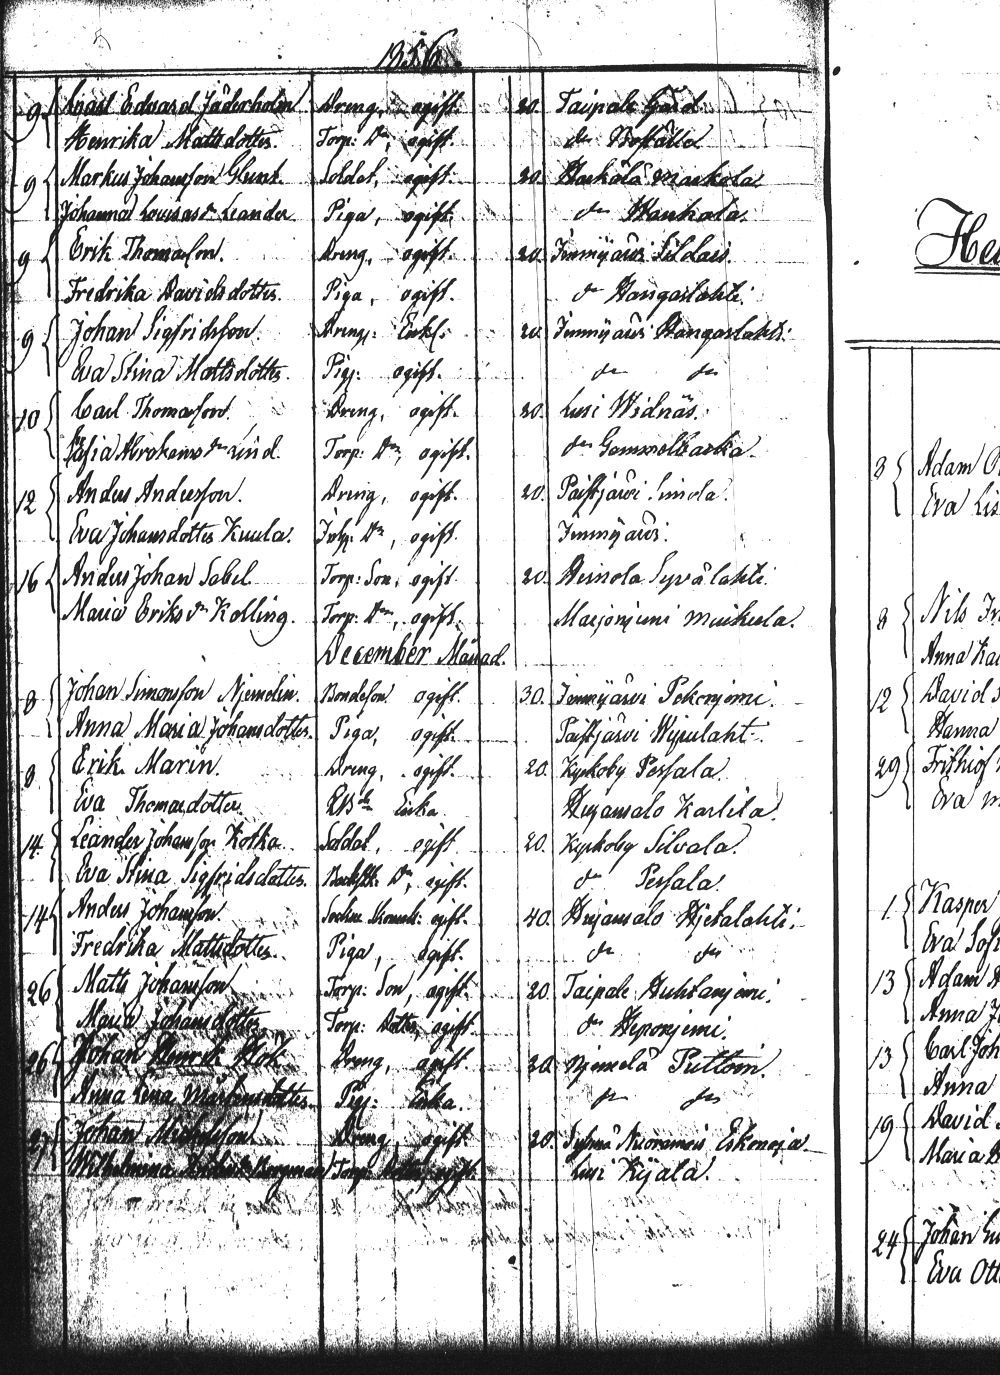 1856.
9 Carl Edvard Jäderholm Dreng, ogift. 20. Taipale Gård
Henrika Mattsdotter. Torp: Dr, ogift. do
9 Markus Johansson Glunt. Soldat, ogift. 20. Haskola Maskola.
Johanna Louisas dr Leander Piga, ogift. do Haukala.
9 Erik Thomasson. Dreng, ogift. 20. Immijärvi
Fredrika Davidsdotter. Piga, ogift. do Hangaslahti.
9 Johan Sigfridsson. Drengj: Enkl: 20. Immijärvi Hangaslahti.
Eva Stina Mattsdotter. Pigj: ogift. do do
10 Carl Thomasson. Dreng, ogift. 20. Lusi Widnäs.
Sofia Abrahams dr Lind. Torp: Dr, ogift. do Gammelbacka.
12 Anders Andersson. Dreng, ogift. 20. Paistjärvi Simola.
Eva Johansdotter Kuula. Inhy: Dr, ogift. Immijärvi.
16 Anders Johan Sabel Torp: Son, ogift. 20. Heinola Syvälahti.
Maria Eriks dr Kolling. Torp: Dr, ogift. Marjoniemi
December Månad.
8 Johan Simonsson Njemelin. Bondeson ogift. 30. Immijärvi Pekonjemi.
Anna Maria Johansdotter. Piga, ogift. Paistjärvi
8 Erik Marin. Dreng, ogift. 20. Kyrkoby Pessala.
Eva Thomasdotter Enka Hujansalo Karlila.
14 Leander Johansson Kotka Soldat, ogift 20. Kyrkoby Silvala.
Eva Stina Sigfridsdotter. Backst: Dr, ogift. do Pessala.
14 Anders Johansson. ogift. 40. Hujansalo Hietalahti.
Fredrika Mattsdotter. Piga, ogift. do do
26 Matts Johansson Torp: Son, ogift. 20. Taipale Huhtanjemi.
Maria Johansdotter Torp: Dotter, ogift. do Heponjemi.
26 Johan Henrik Hök Dreng, ogift. 20. Njemelä Puttoin.
Anna Lena Mårtensdotter. Pigj: Enka. do do
27 Johan Michelsson. Dreng, ogift 20.
Wilhelmina Bergman Torp: Dotter, ogift. Lusi Kijala.
3 Adam
Eva Lis
8 Nils
Anna
12 David
Hanna
29 Frithiof
Eva
1. Kasper
Eva Sofi
13 Adam
Anna
13 Carl Joh
Anna
19 David
Maria
24 Johan
Eva Ott